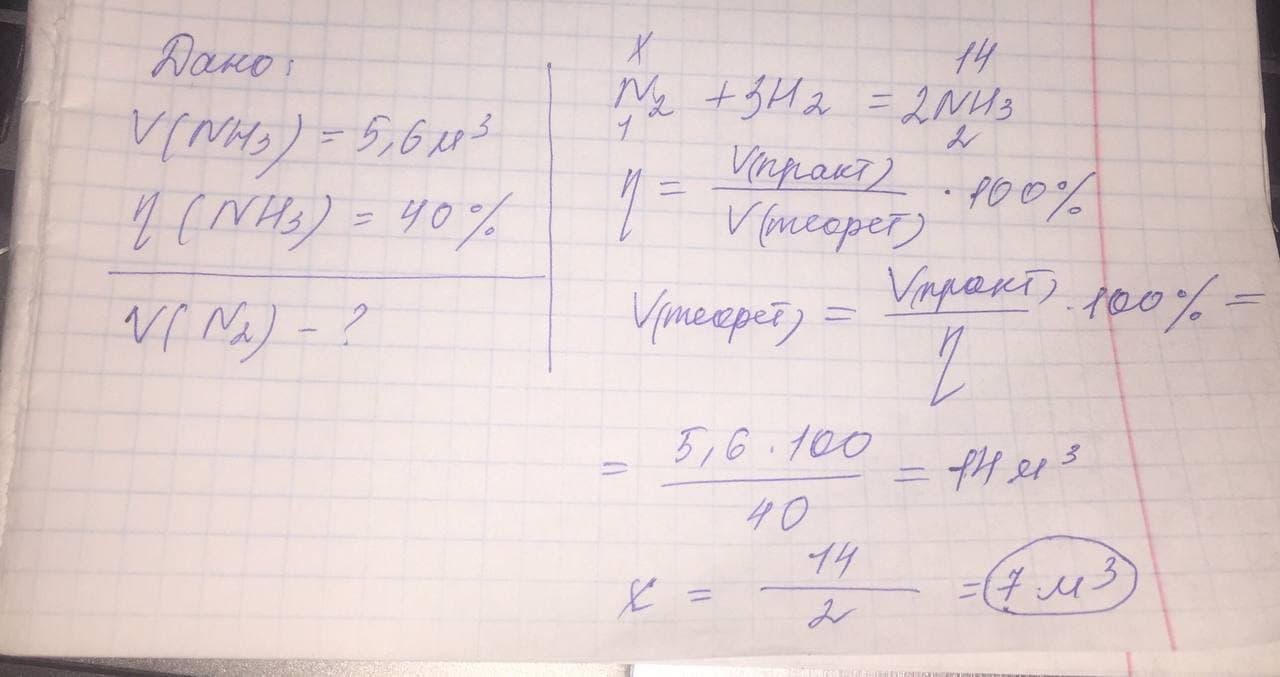 Дано:
V(NH3) = 5,6 м³
η (NH3) = 40%
V(N2) - ?
x 14
N2 + 3H2 = 2NH3
1 2
η = V(практ) / V(теорет) · 100%
V(теорет) = V(практ) / η · 100% =
= 5,6 · 100 / 40 = 14 м³
x = 14 / 2 = 7 м³